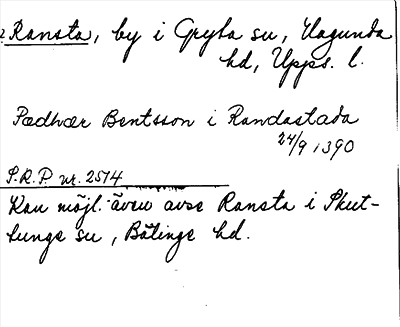 Ransta, by i Gryta sn, Hagunda
hd, Upps. l.
Pædhær Bentsson i Randastada
24/9 1390
S.R.P. nr. 2514
Kan möjl. även avse Ransta i Skut-
tunge sn, Bälinge hd.